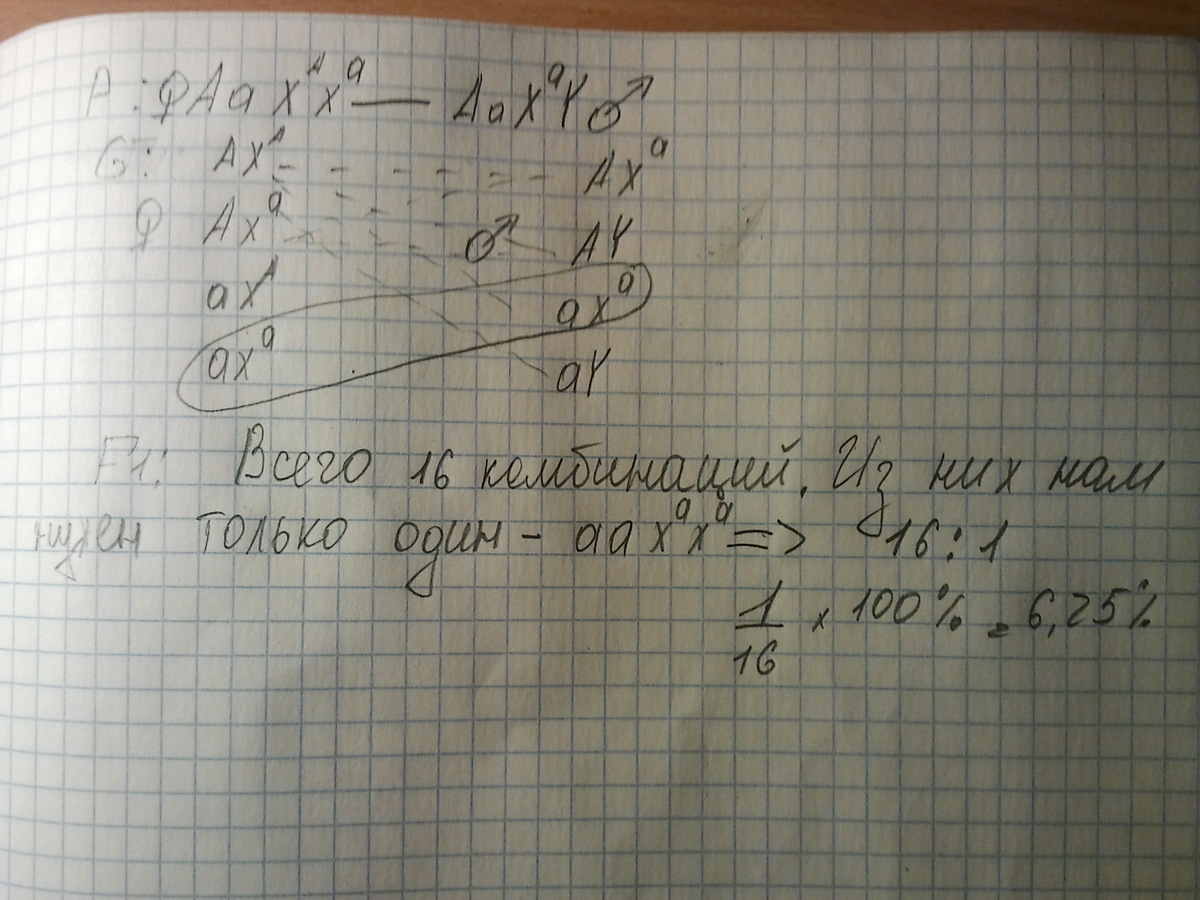 P: ♀AaXᴬXᵃ — AaXᵃY♂
G: AXᴬ - - - - - - AXᵃ
♀ AXᵃ ♂ AY
aXᴬ aXᵃ
aXᵃ aY
F1: Всего 16 комбинаций. Из них нам
нужен только один - aaXᵃXᵃ => 16:1
1/16 x 100% = 6,25%